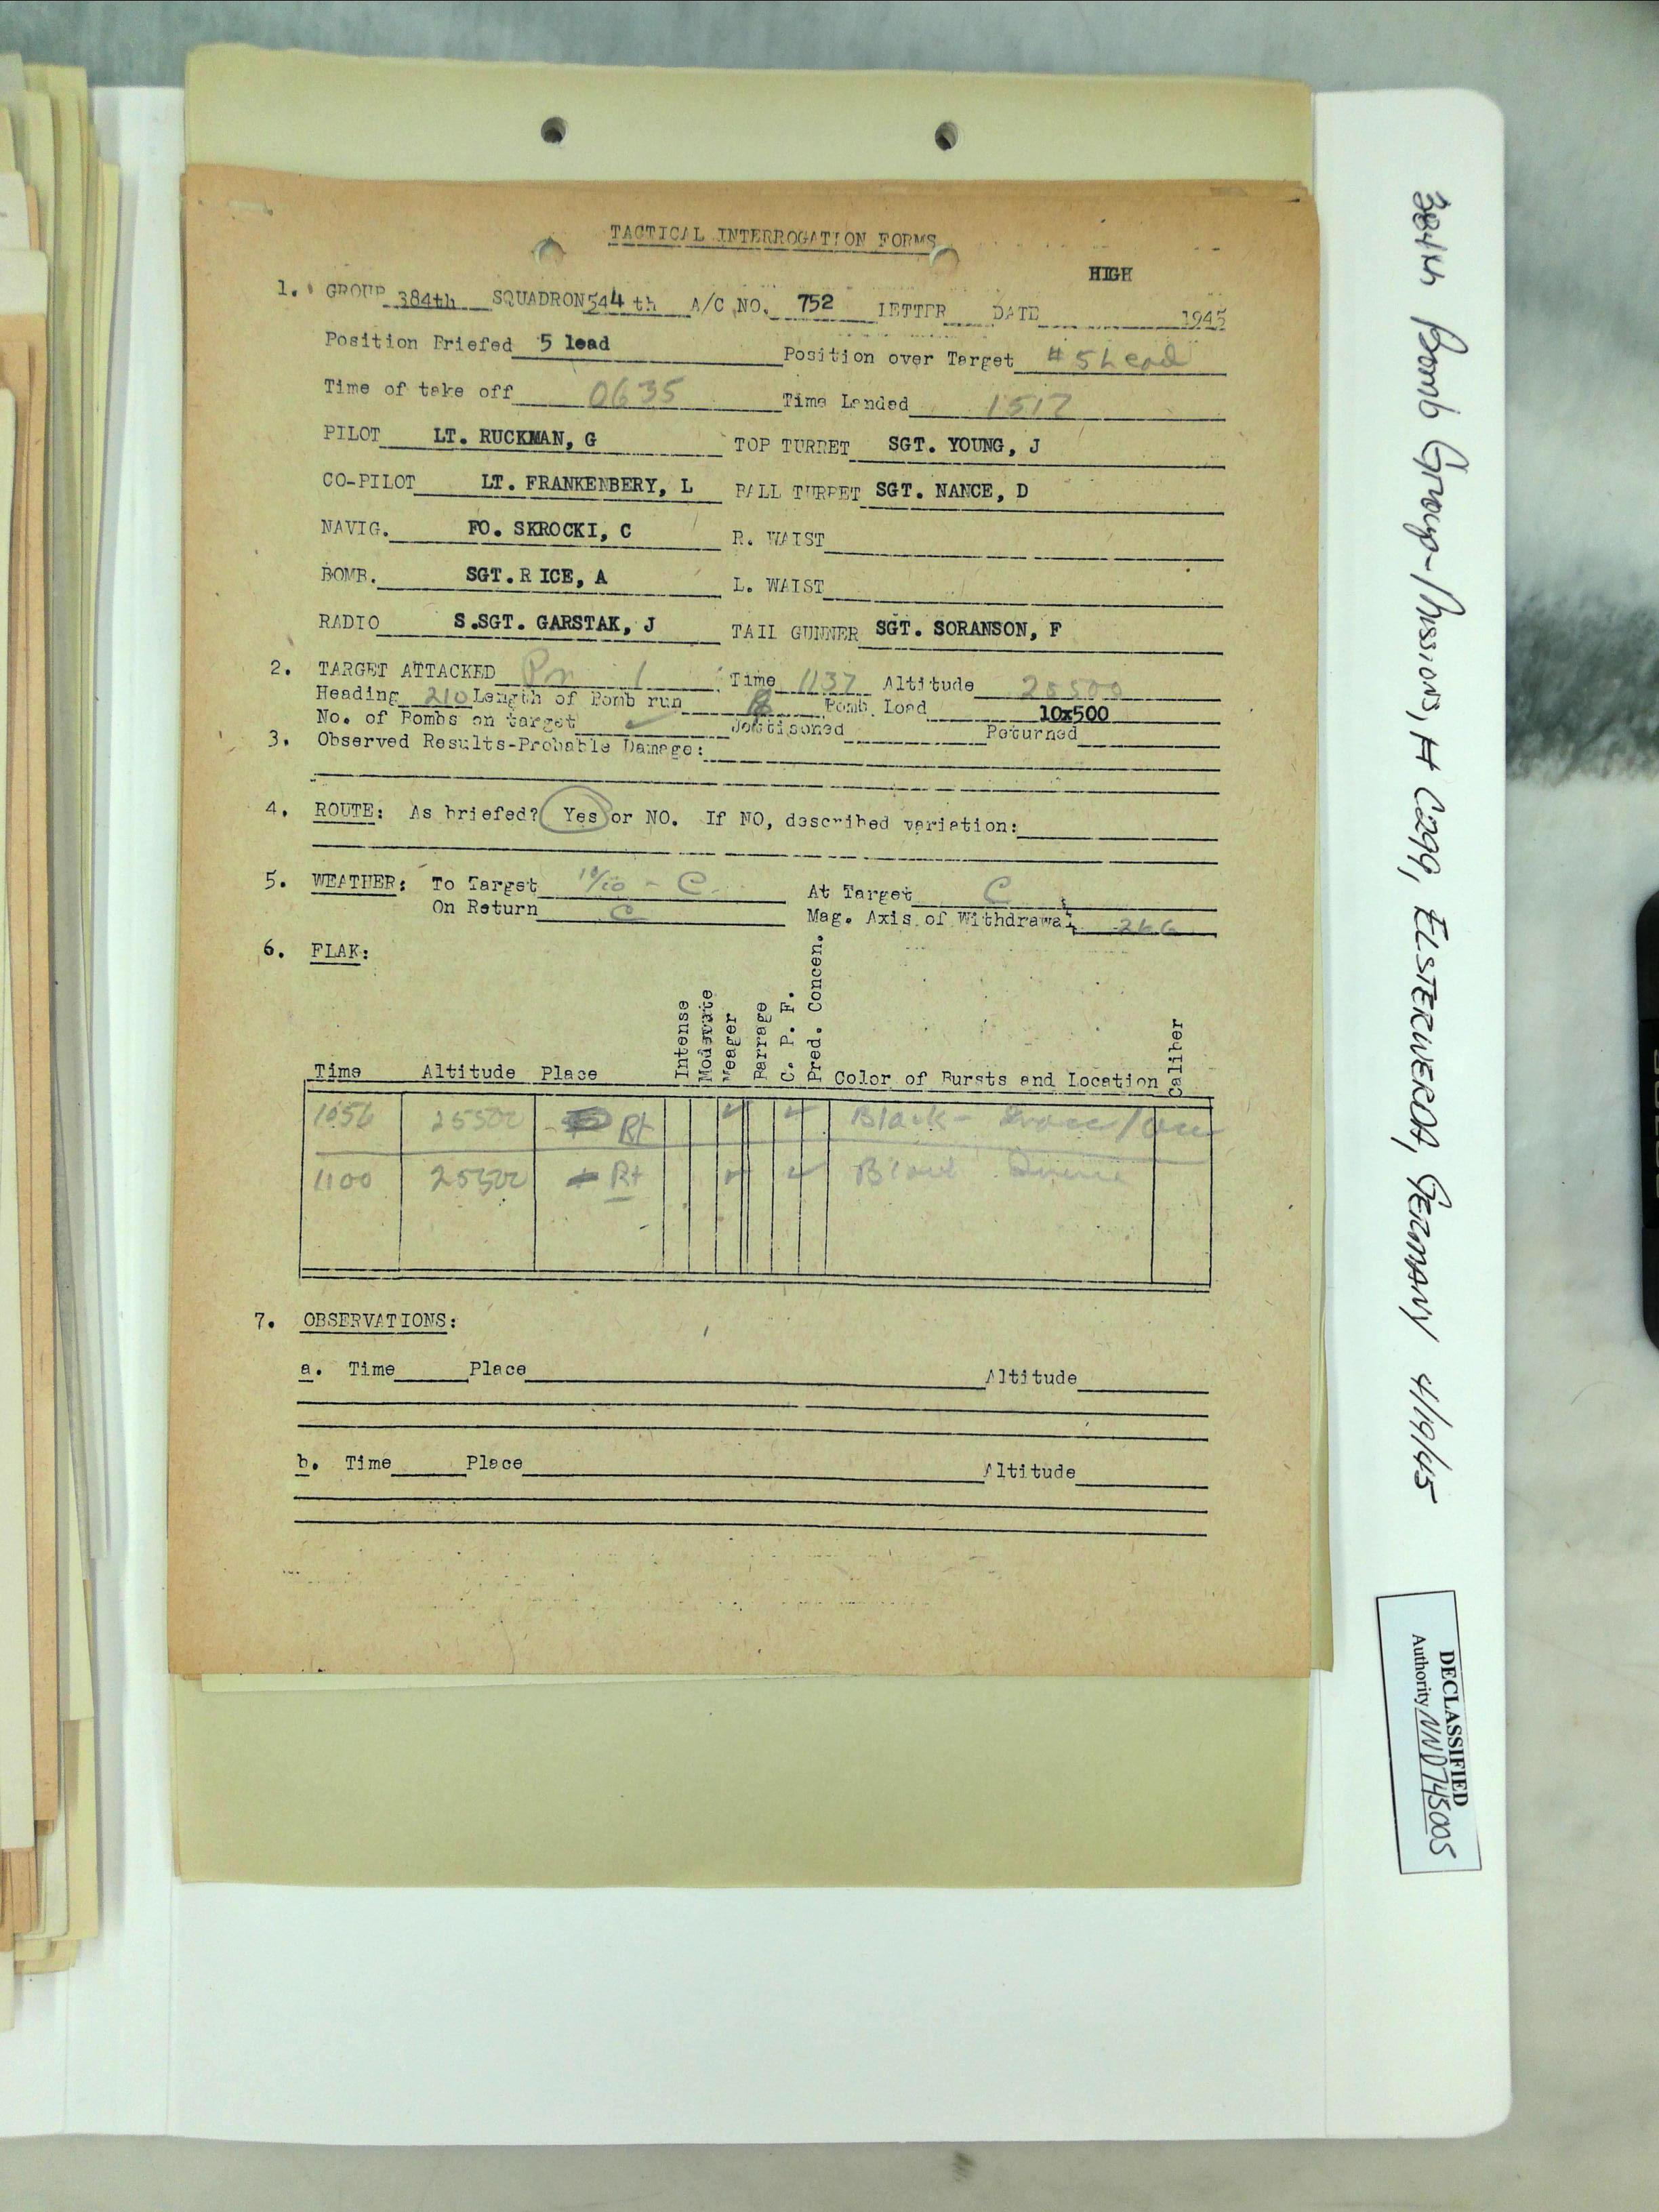 TACTICAL INTERROGATION FORMS
HIGH
1. GROUP 384th SQUADRON 544 th A/C NO. 752 LETTER DATE 1945
Position Briefed 5 lead Position over Target # 5 Lead
Time of take off 0635 Time Landed 1517
PILOT LT. RUCKMAN, G TOP TURRET SGT. YOUNG, J
CO-PILOT LT. FRANKENBERY, L BALL TURRET SGT. NANCE, D
NAVIG. FO. SKROCKI, C R. WAIST
BOMB. SGT. R ICE, A L. WAIST
RADIO S.SGT. GARSTAK, J TAIL GUNNER SGT. SORANSON, F
2. TARGET ATTACKED Time 1137 Altitude 25500
Heading 210 Length of Bomb run Bomb Load 10x500
No. of Bombs on target ✓ Jettisoned Returned
3. Observed Results-Probable Damage:
4. ROUTE: As briefed? Yes or NO. If NO, described variation:
5. WEATHER: To Target 10/10 - C At Target C
On Return C Mag. Axis of Withdrawal 266
6. FLAK:
Time Altitude Place Intense Moderate Meager Barrage C. P. F. Pred. Concen. Color of Bursts and Location Caliber
1056 25500 Rt ✓ ✓ Black -
1100 25500 Rt ✓ ✓
7. OBSERVATIONS:
a. Time Place Altitude
b. Time Place Altitude
384th Bomb Group - Mission, # C299, ELSTERWERDA, GERMANY 4/19/45
DECLASSIFIED
Authority NND745005